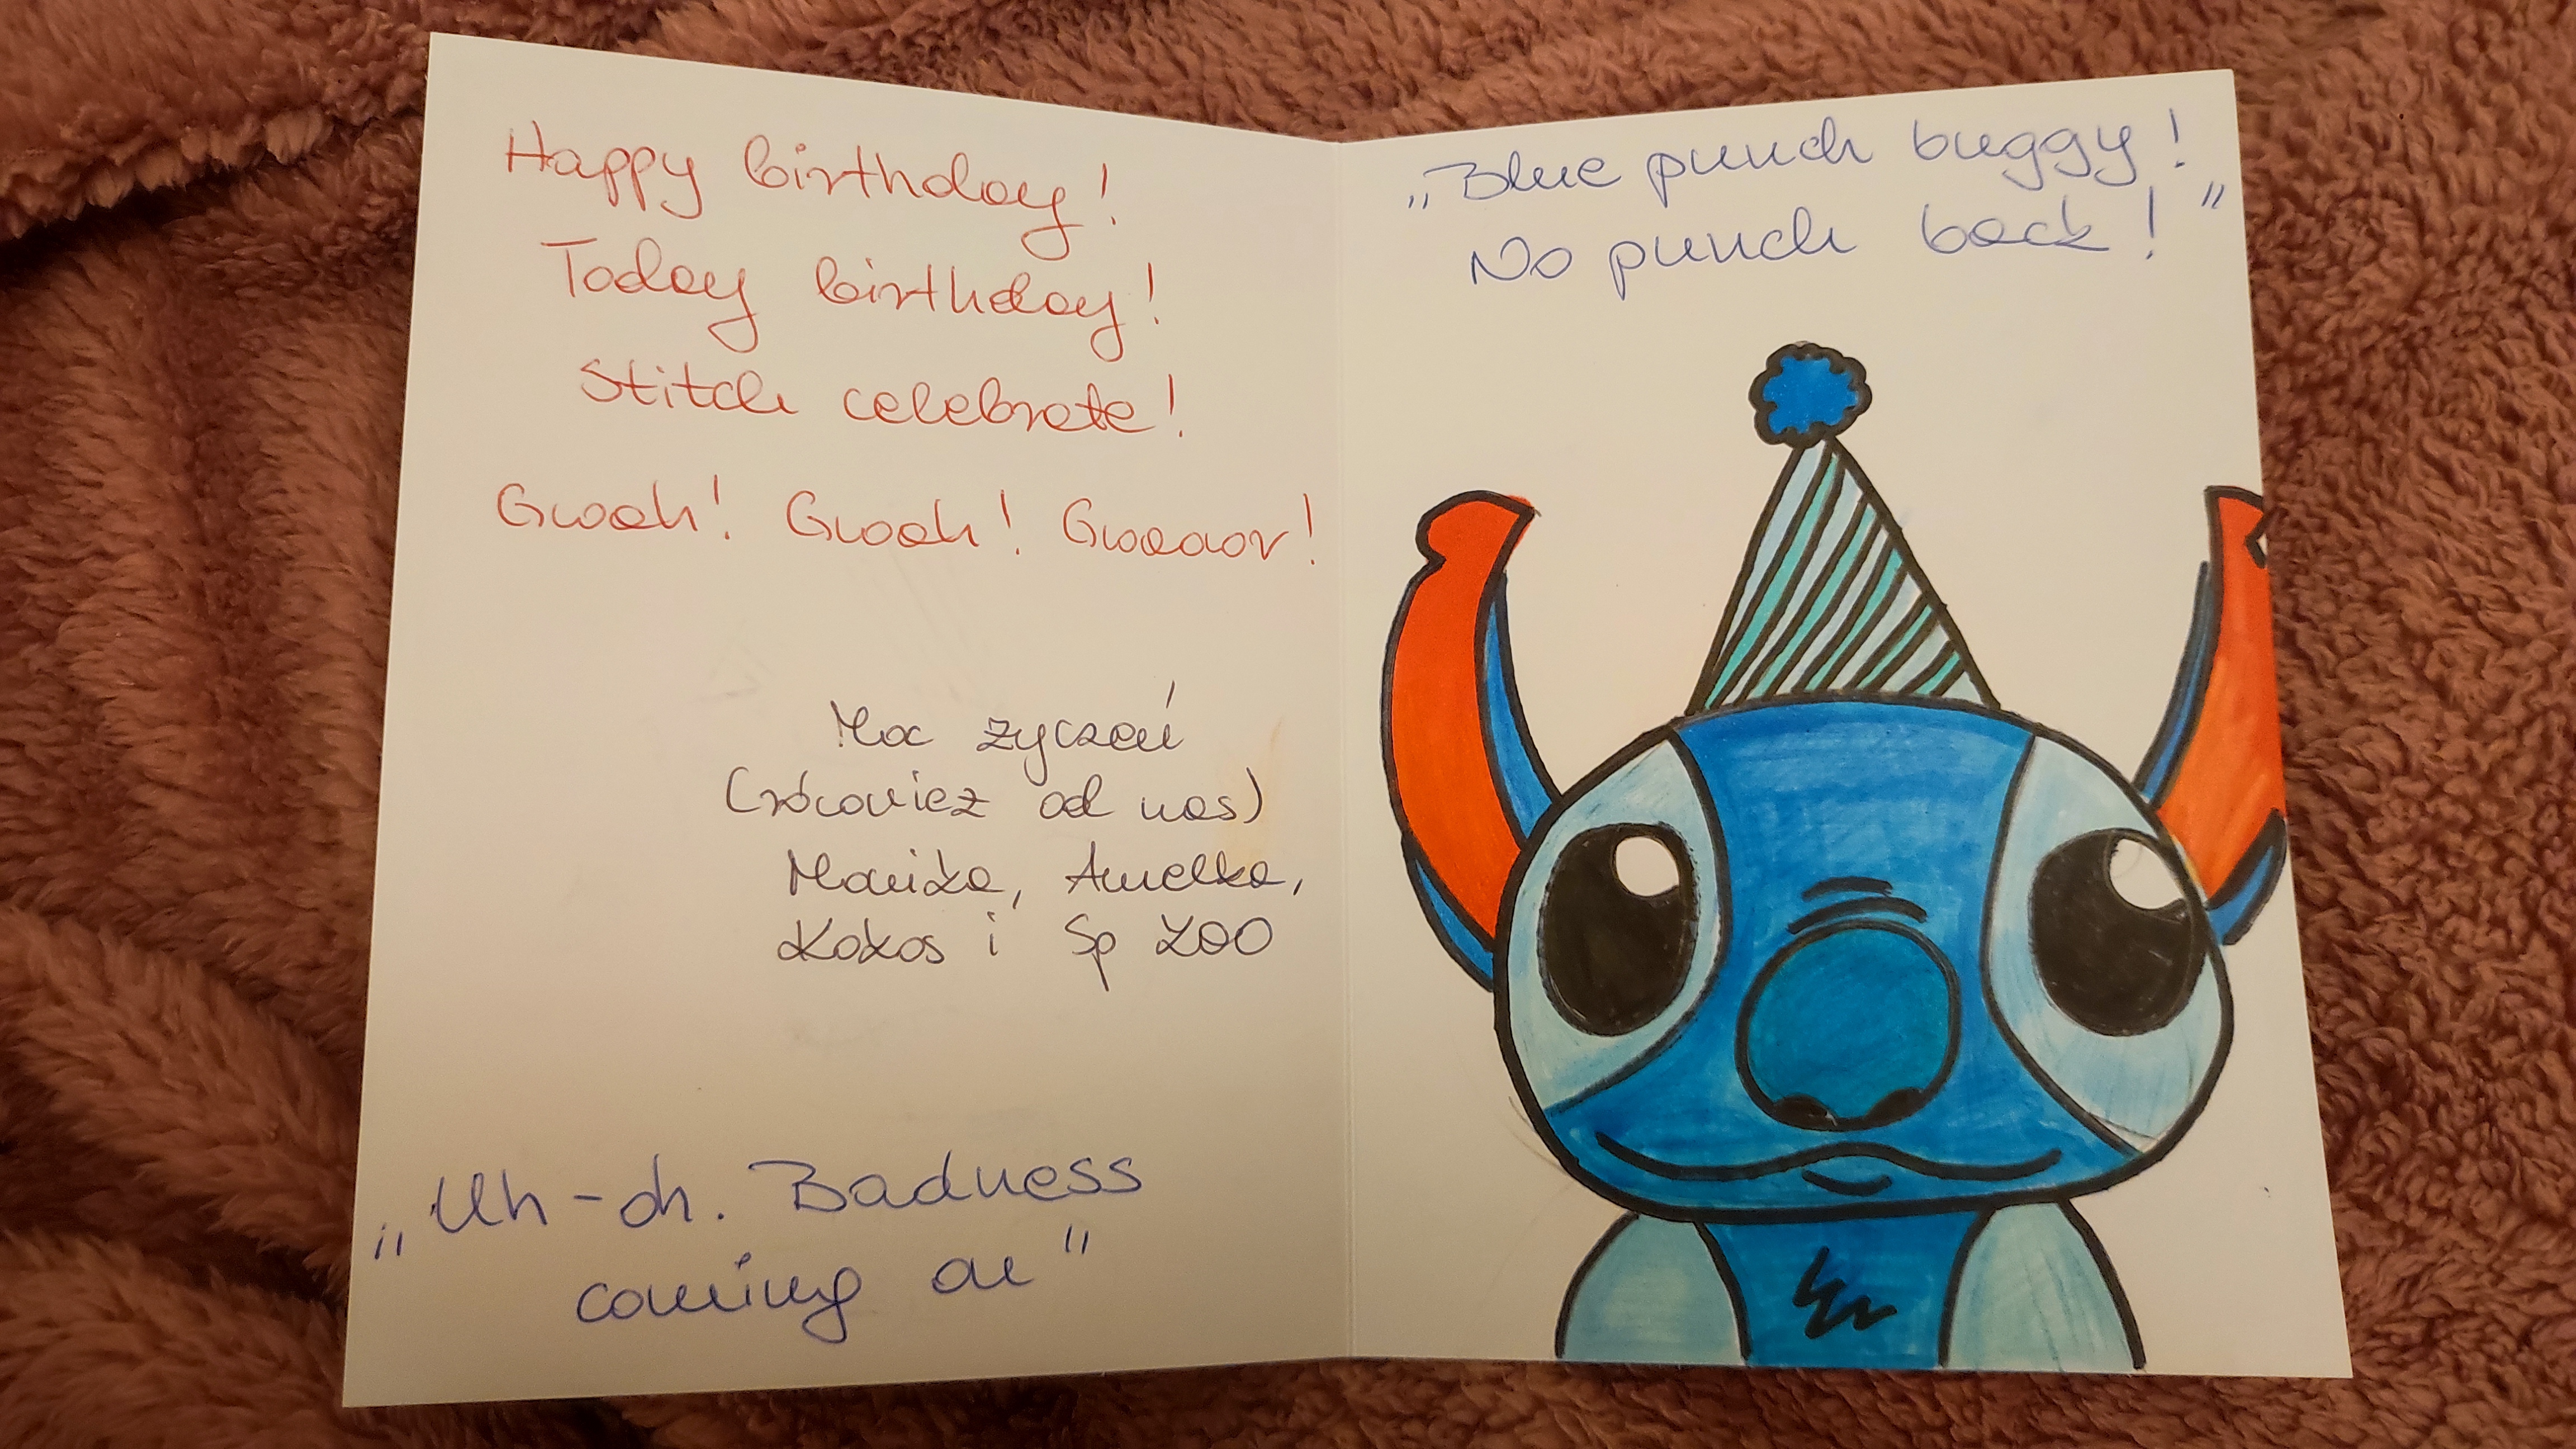 Happy birthday!
Today birthday!
Stitch celebrate!
Gwoah! Gwoah! Gwoaaor!
Moc życzeń
(również od nas)
Mariża, Amelka,
Kokos i Sp ZOO
„Uh-oh. Badness
coming on"
„Blue punch buggy!
No punch back!"